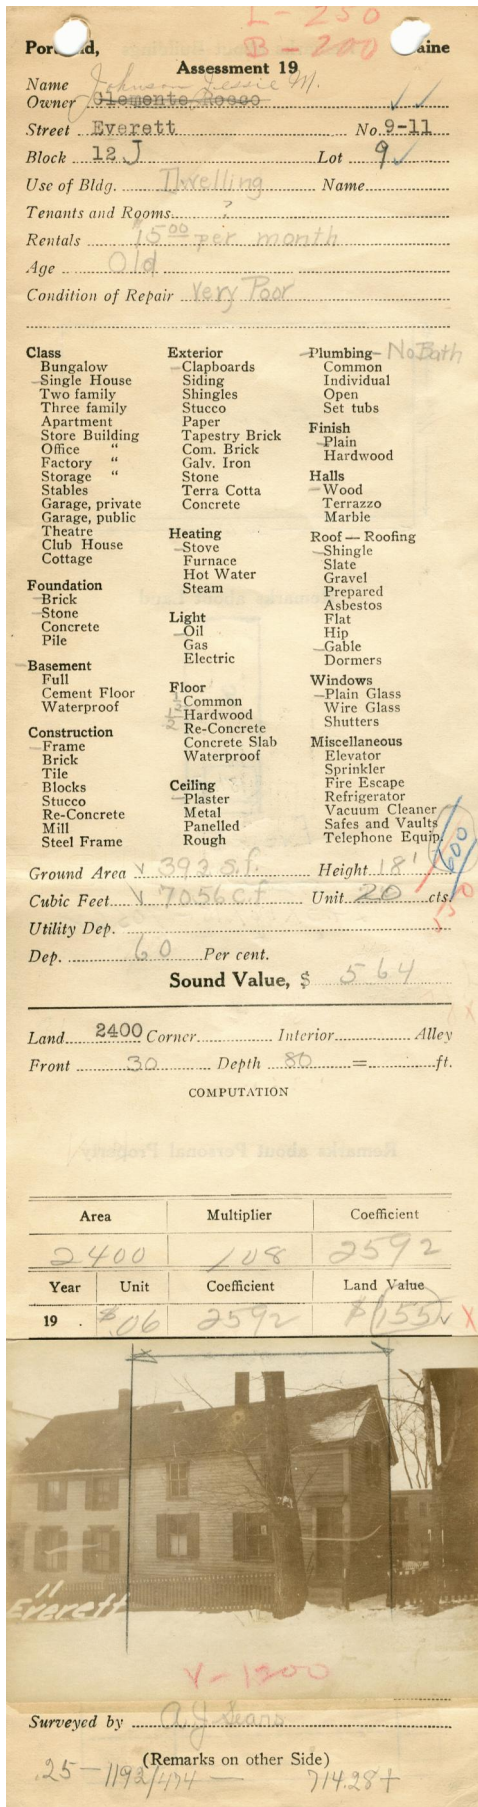 L - 250
B - 200
Portland, Maine
Assessment 19
Johnson Jessie M.
Name
Owner Clemente Rocco
Street Everett No. 9-11
Block 12 J Lot 9
Use of Bldg. Dwelling Name
Tenants and Rooms ?
Rentals $15.00 per month
Age Old
Condition of Repair Very Poor
Class
Bungalow
Single House
Two family
Three family
Apartment
Store Building
Office "
Factory "
Storage "
Stables
Garage, private
Garage, public
Theatre
Club House
Cottage
Foundation
Brick
Stone
Concrete
Pile
Basement
Full
Cement Floor
Waterproof
Construction
Frame
Brick
Tile
Blocks
Stucco
Re-Concrete
Mill
Steel Frame
Exterior
Clapboards
Siding
Shingles
Stucco
Paper
Tapestry Brick
Com. Brick
Galv. Iron
Stone
Terra Cotta
Concrete
Heating
Stove
Furnace
Hot Water
Steam
Light
Oil
Gas
Electric
Floor
1/2 Common
1/2 Hardwood
Re-Concrete
Concrete Slab
Waterproof
Ceiling
Plaster
Metal
Panelled
Rough
Plumbing - No Bath
Common
Individual
Open
Set tubs
Finish
Plain
Hardwood
Halls
Wood
Terrazzo
Marble
Roof — Roofing
Shingle
Slate
Gravel
Prepared
Asbestos
Flat
Hip
Gable
Dormers
Windows
Plain Glass
Wire Glass
Shutters
Miscellaneous
Elevator
Sprinkler
Fire Escape
Refrigerator
Vacuum Cleaner
Safes and Vaults
Telephone Equip.
600
Ground Area 392 s.f. Height 18'
Cubic Feet 7056 c.f Unit 20 cts.
Utility Dep.
Dep. 60 Per cent.
Sound Value, $ 564
Land 2400 Corner Interior Alley
Front 30 Depth 80 = ft.
COMPUTATION
Area Multiplier Coefficient
2400 108 2592
Year Unit Coefficient Land Value
19 . $.06 2592 $155 X
11
Everett
V - 1200
Surveyed by A J Sears
(Remarks on other Side)
.25 - 1192/474 - 714.28+